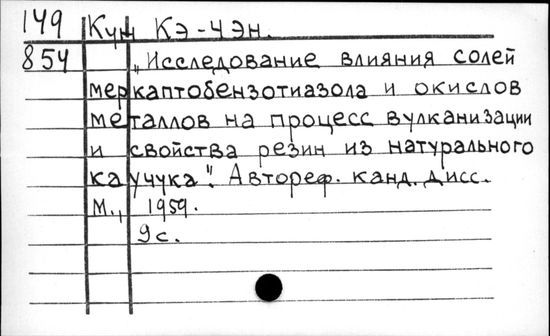 149 Кун Кэ-Чэн.
854 „Исследование влияния солей
меркаптобензотиазола и окислов
металлов на процесс вулканизации
и свойства резин из натурального
каучука". Автореф. канд. дисс.
М., 1959.
9с.